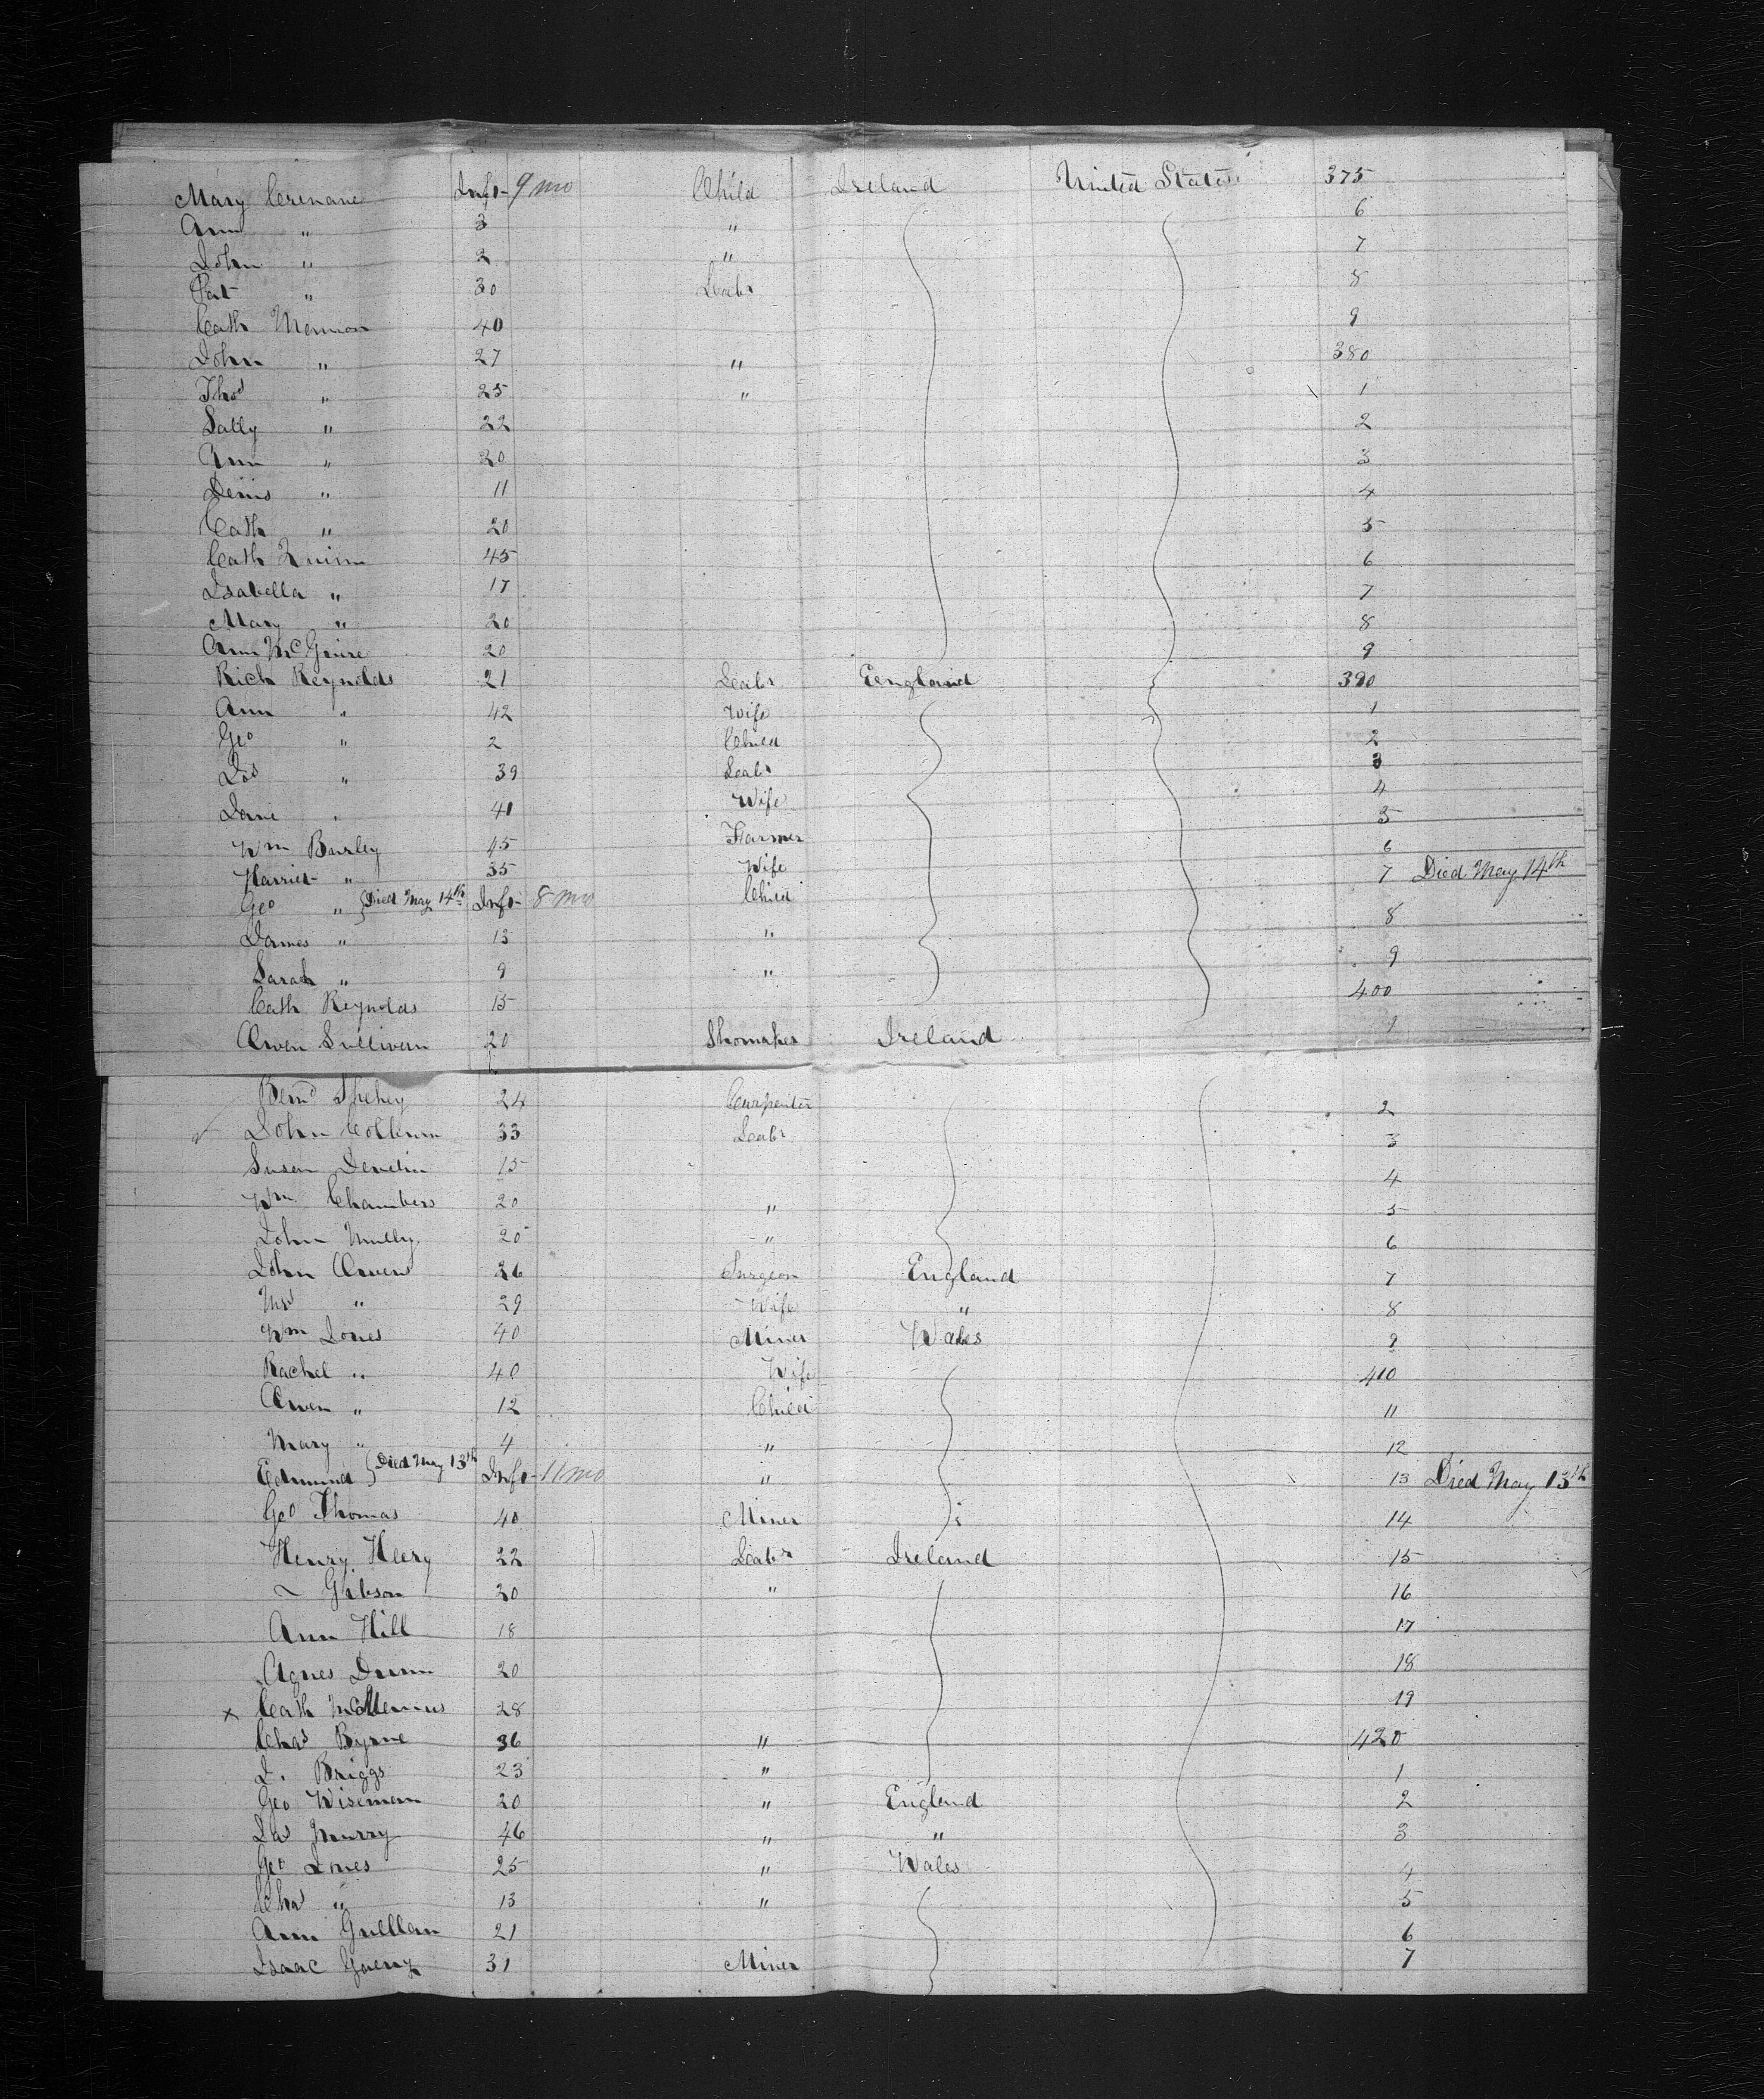 Mary Crenane Inft- 9 mo Child Ireland United States 375
Ann " 3 " 6
John " 2 " 7
Pat " 30 Labr 8
Cath 40 9
John " 27 " 380
Thos " 25 " 1
Sally " 22 2
Ann " 20 3
Denis " 11 4
Cath " 20 5
Cath Quinn 45 6
Isabella " 17 7
Mary " 20 8
Ann McGuire 20 9
Rich Reynolds 21 Labr England 390
Ann " 42 Wife 1
Geo " 2 Child 2
Jas " 39 Labr 3
Jane " 41 Wife 4
Wm Burley 45 Farmer 5
Harriet " 35 Wife 6
Geo " {Died May 14th Inft- 8 mo Child 7 Died May 14th
James " 13 " 8
Sarah " 9 " 9
Cath Reynolds 15 400
Owen Sullivan 20 Shomaker Ireland 1
24 Carpenter 2
John 33 Labr 3
Susan Develin 15 4
Wm Chambers 20 " 5
John 20 " 6
John Owens 36 Surgeon England 7
Mrs " 29 Wife " 8
Wm Jones 40 Miner Wales 9
Rachel " 40 Wife 410
Owen " 12 Child 11
Mary " 4 " 12
Edmund {Died May 13th Inft- 11 mo " 13 Died May 13th
Geo Thomas 40 Miner 14
Henry Heery 22 Labr Ireland 15
~ Gibson 20 " 16
Ann Hill 18 17
Agnes Dunn 20 18
x Cath McManus 28 19
Chas Byrne 36 " 420
J. Briggs 23 " 1
Geo Wiseman 20 " England 2
Jas Murry 46 " " 3
Geo Jones 25 " Wales 4
Chas " 13 " 5
Ann 21 6
Isaac 31 Miner 7